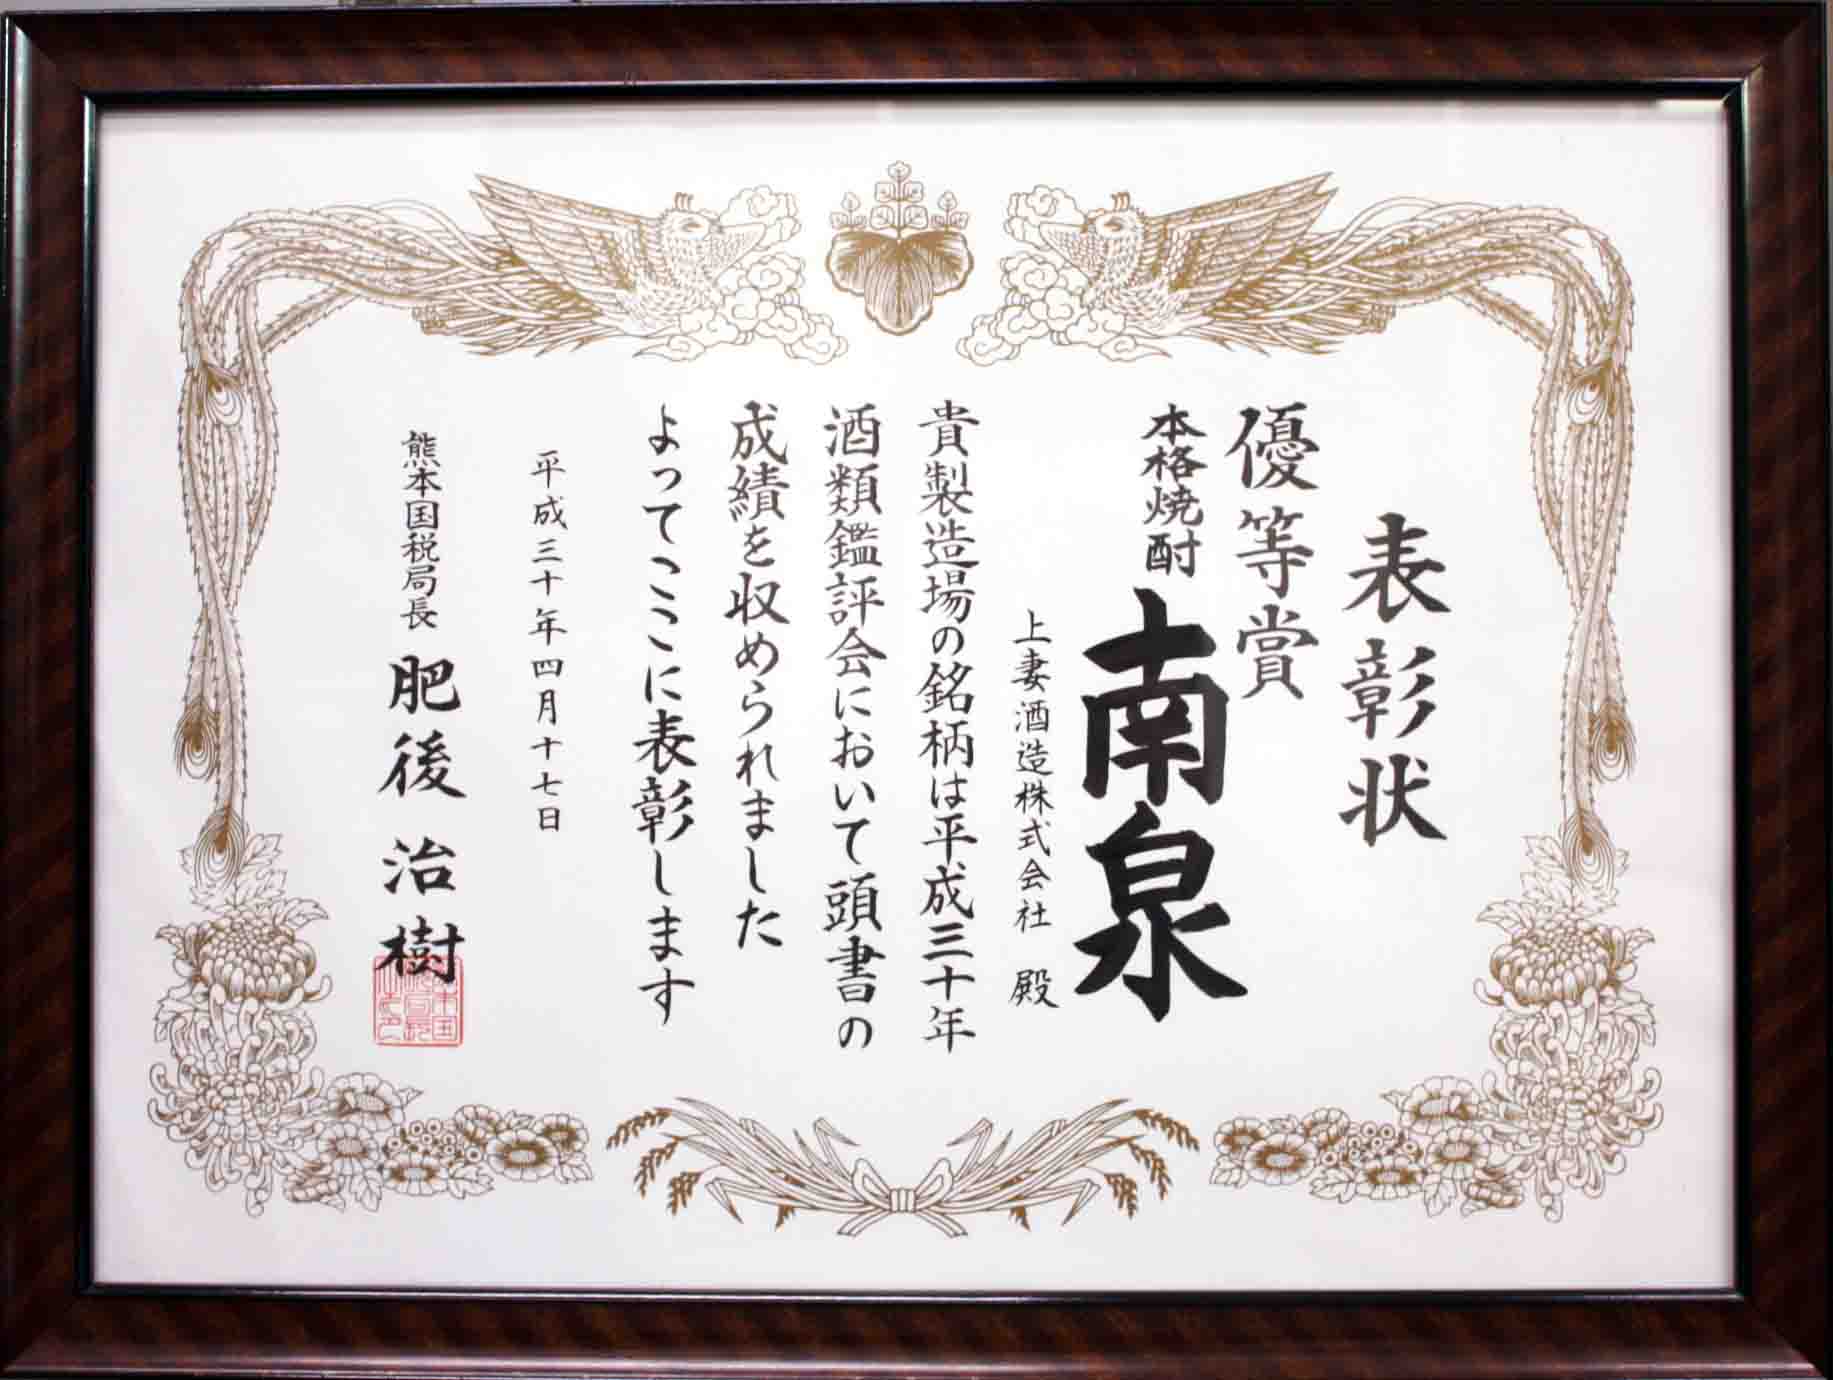 表彰状
優等賞
本格焼酎 南泉
上妻酒造株式会社 殿
貴製造場の銘柄は平成三十年
酒類鑑評会において頭書の
成績を収められました
よってここに表彰します
平成三十年四月十七日
熊本国税局長 肥後治樹